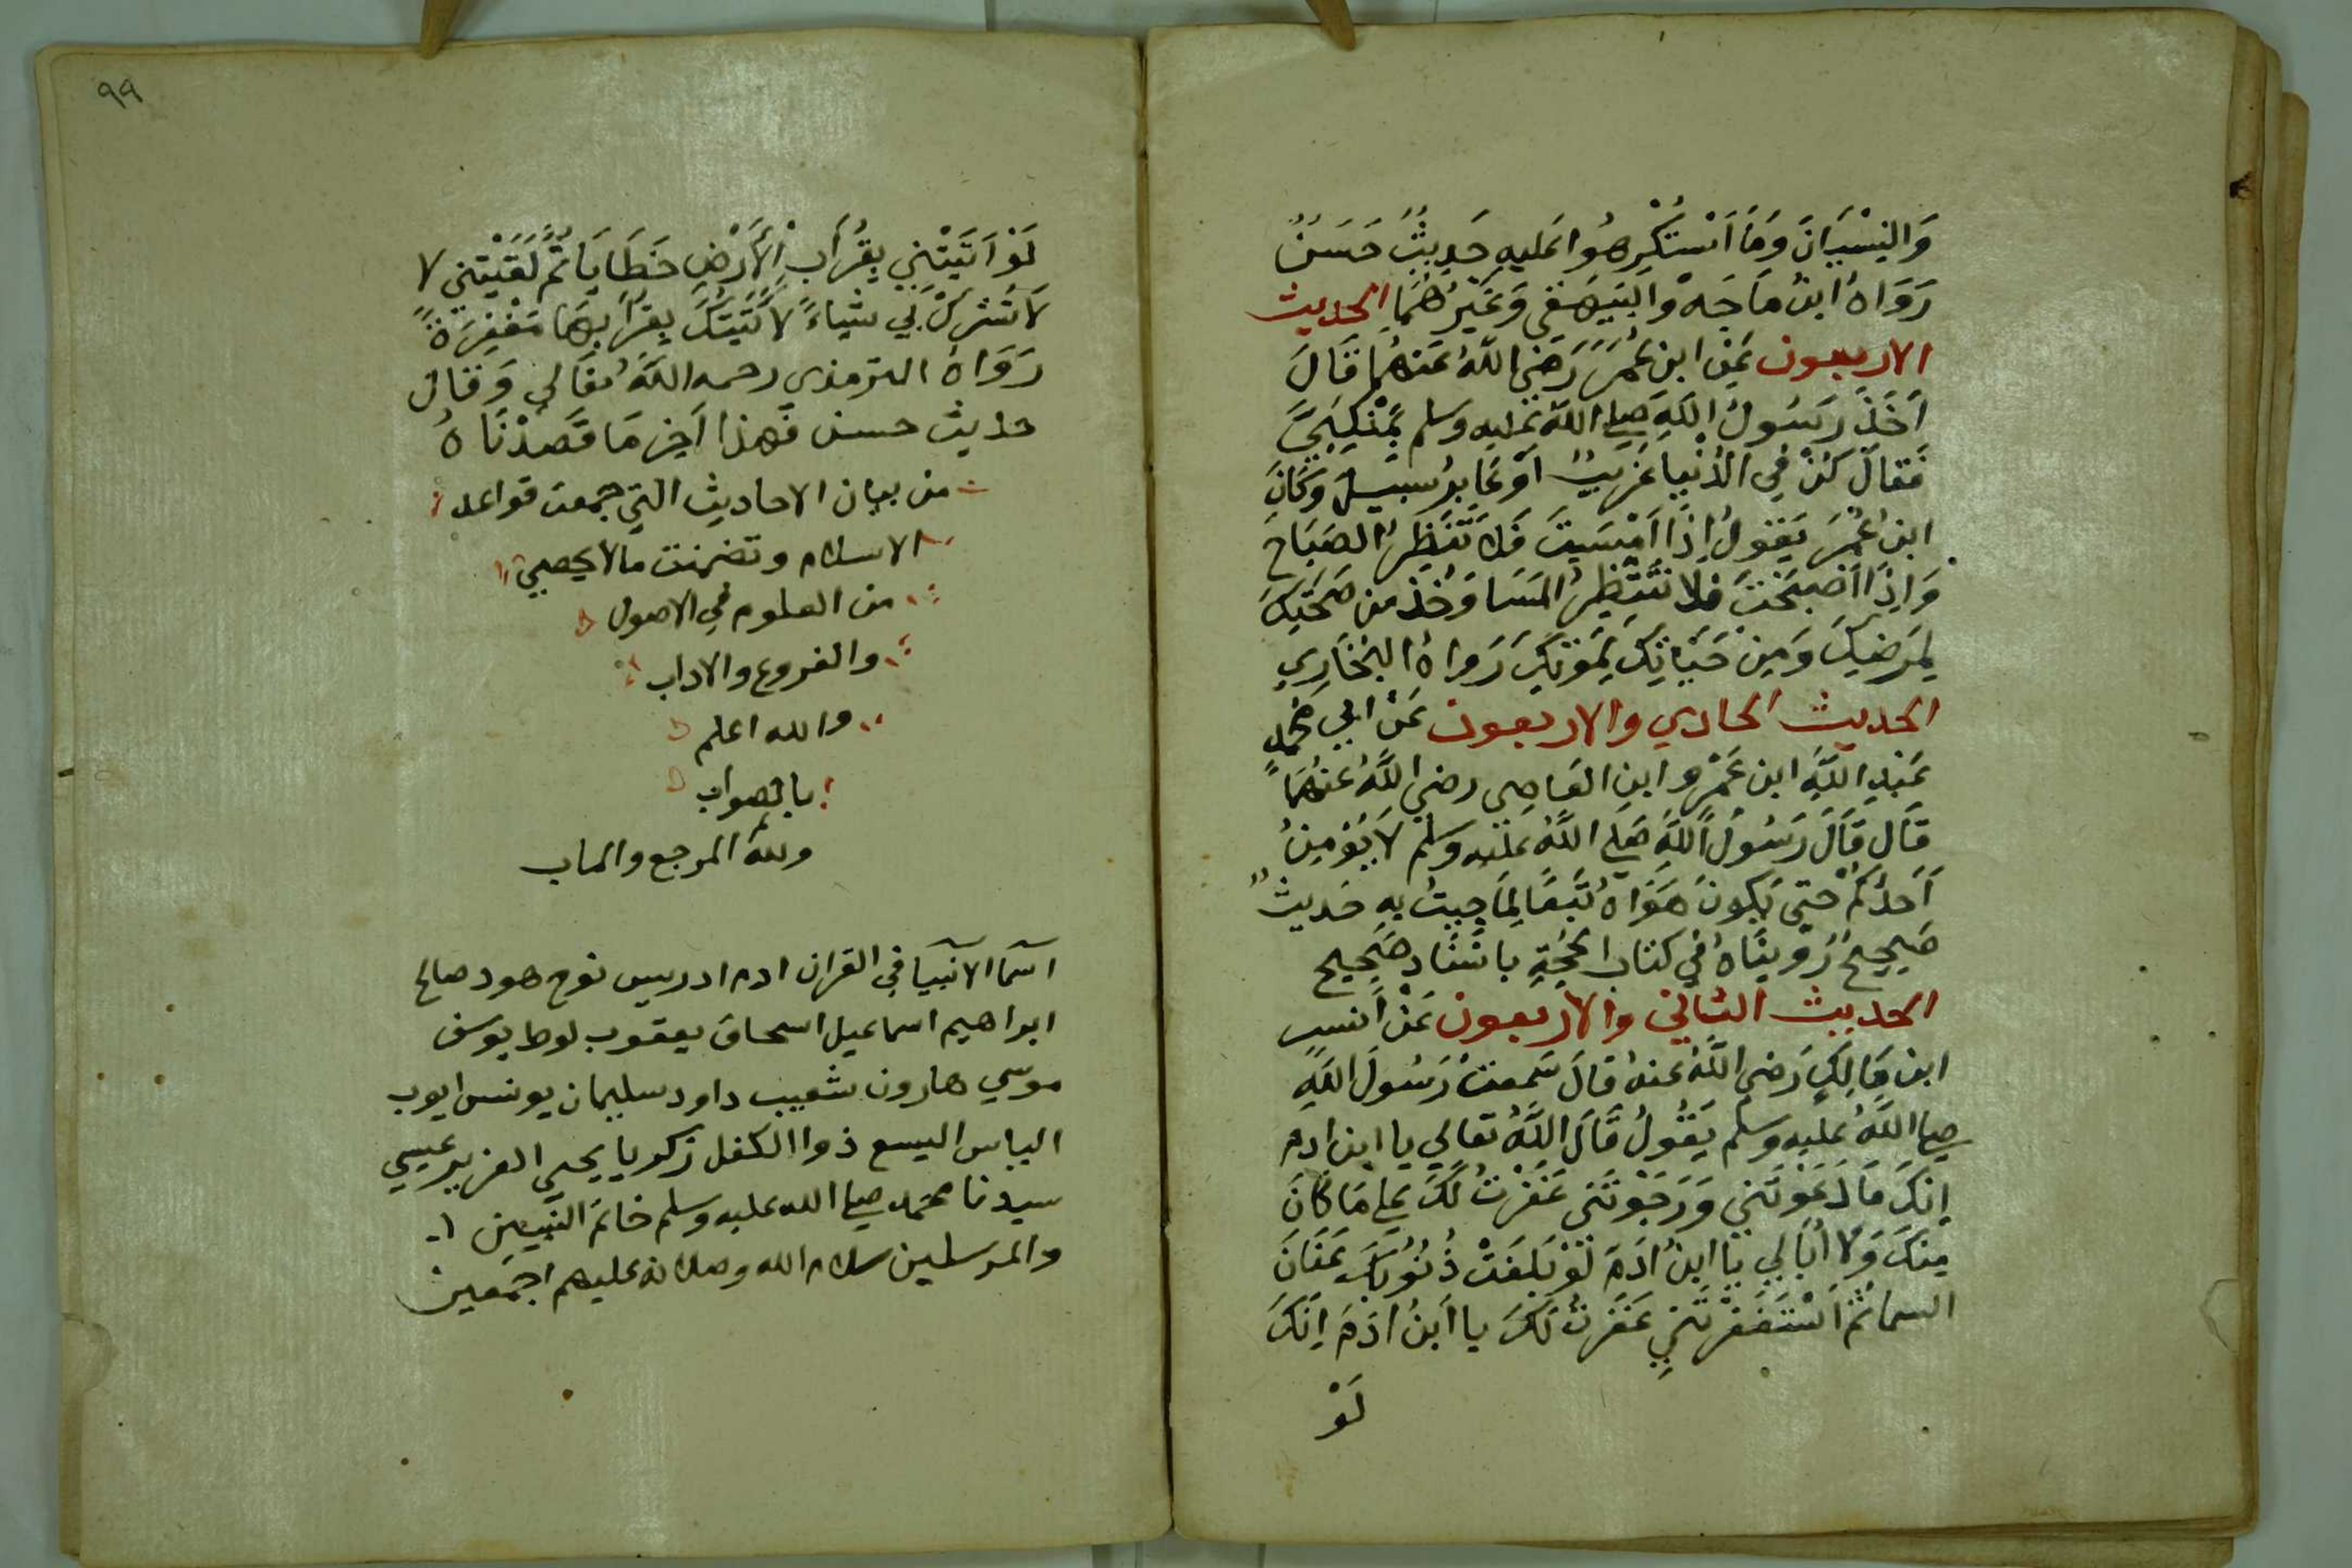 وَالنِسْيَانَ وَمَا اَسْتُكْرِهُوا عَليهِ حَدِيثٌ حَسَنٌ
رَوَاهُ ابنُ مَاجَهْ وَالبَيهَقي وَغَيْرُهُمَا الحديث
الاربعون عَنِ ابنِ عُمَرَ رَضِيَ اللَّهُ عَنهُمَا قَالَ
أَخَذَ رَسُولُ اللَّهِ صلى اللَّه عليه وسلم بِمَنْكِبَيَّ
فَقالَ كُنْ فِي الدُنْيا غَرِيبٌ اَوْ عَابِرُ سَبِيلٍ وَكَانَ
ابنُ عُمَرَ يَقولُ إِذَا اَمْسَيتَ فَلا تَنتَظِرُ الصَبَاحَ
وَاِذَا اَصْبَحْتَ فلا تَنتَظِرُ المَسَا وَخُذ من صِحَتِكَ
لِمَرَضِكَ وَمِن حَيَاتِكَ لِمَوتِكَ رَوَاهُ البُخَارِي
الحديث الحادي والاربعون عَنْ ابي مُحمدٍ
عَبدِ اللَّهِ ابن عَمْرو ابنِ العَاصِي رضي اللَّهُ عَنهُمَا
قَالَ قَالَ رَسُولُ اللَّهِ صَلى اللَّهُ عَليه وسَلم لَا يُؤْمِنُ
اَحَدُكُمْ حَتى يَكونَ هَوَاهُ تَبَعًا لِمَا جِيتُ بِهِ حَديثٌ
صَحِيحٌ رُوِينَاهُ في كتاب الحُجَةِ باسْنَادٍ صَحِيحٍ
الحديث الثاني والاربعون عَنْ أنسِ
ابنِ مَالِكٍ رَضي اللَّهُ عنهُ قالَ سَمِعتُ رَسُولَ اللَّهِ
صلى اللَّهُ عليه وسلم يَقُولُ قَالَ اللَّهُ تعالى يا ابن ادم
إِنكَ مَا دَعَوتَني وَرَجَوْتَنَي غَفَرْتُ لَكَ عَلى مَا كَانَ
مِنكَ وَلا اُبَالِي يَا ابنُ ادَمَ لَوْ بَلَغَتْ ذُنُوبُكَ عَنَانَ
السما ثُمَّ اَسْتَغفَرْتَنِي غَفَرْتُ لَكَ يا ابنُ ادَمَ اِنَكَ
لَوْ
٩٩
لَوْ اَتَيْتَنِي بِقُرَابِ الْأَرْضِ خَطَايَا ثُمَّ لَقَيْتَنِي لا
لَا تُشْرِكْ بِي شياءً لَأَتَيتُكَ بِقُرابِهَا مَغْفِرَةً
رَوَاهُ الترمذي رحمه اللَّهُ تعَالى وَقَالَ
حديث حسن فَهذا آخِرَ مَا قَصَدْنَاهُ
من بيان الاحاديث التي جمعت قواعد
الاسلام وتضمنت ما لا يحصى
من العلوم في الاصول
والفروع والاداب
والله اعلم
بالصواب
ولله المرجع والماب
اسما الانبيا في القران ادم ادريس نوح هود صالح
ابراهيم اسماعيل اسحاق يعقوب لوط يوسف
موسي هارون شعيب داود سليمان يونس ايوب
الياس اليسع ذوا الكفل زكريا يحيى العزير عيسي
سيدنا محمد صلى الله عليه وسلم خاتم النبيين
والمرسلين سلام الله وصلاته عليهم اجمعين